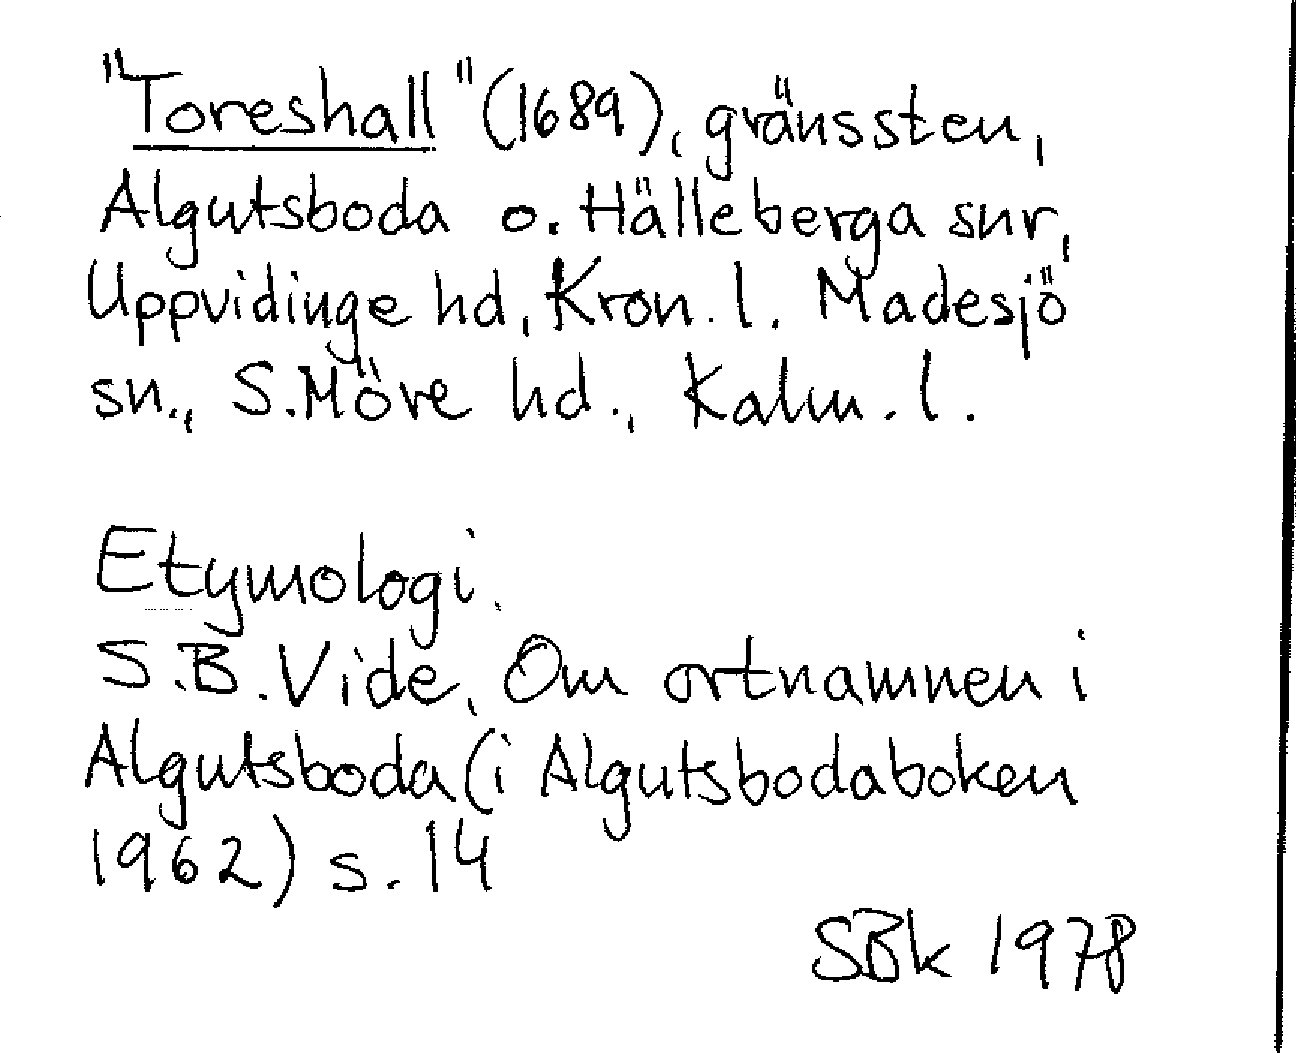 "Toreshall" (1689), gränssten,
Algutsboda o. Hälleberga snr,
Uppvidinge hd, Kron. l. Madesjö
sn., S. Möre hd., Kalm. l.
Etymologi.
S.B. Vide, Om ortnamnen i
Algutsboda (i Algutsbodaboken
1962) s. 14
SBk 1978